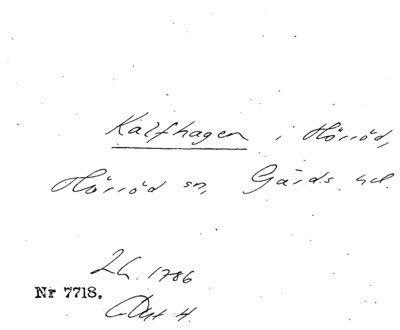 Kalfhagen i Hörröd,
Hörröd sn, Gärds hd.
1786
Nr 7718.